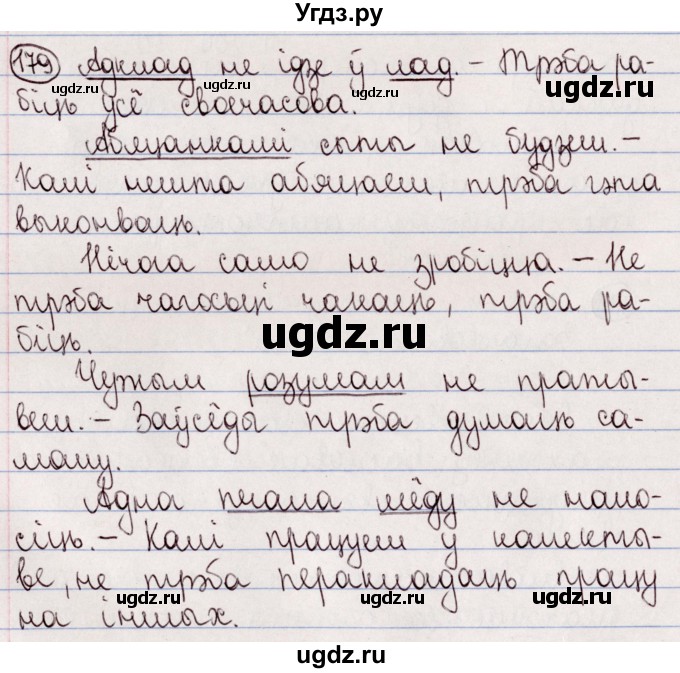 Угдз.ру
179 Адклад не ідзе ў лад. – Трэба ра-
біць усё своечасова.
Абяцанкамі сыты не будзеш. –
Калі нешта абяцаеш, трэба гэта
выконваць.
Нічога само не зробіцца. – Не
трэба чагосьці чакаць, трэба ра-
біць.
Чужым розумам не пражы-
веш. – Заўсёды трэба думаць са-
маму.
Адна пчала мёду не нано-
сіць. – Калі працуеш у калекты-
ве, не трэба перакладаць працу
на іншых.
ugdz.ru
ugdz.ru
ugdz.ru
ugdz.ru
ugdz.ru
ugdz.ru
ugdz.ru
ugdz.ru
ugdz.ru